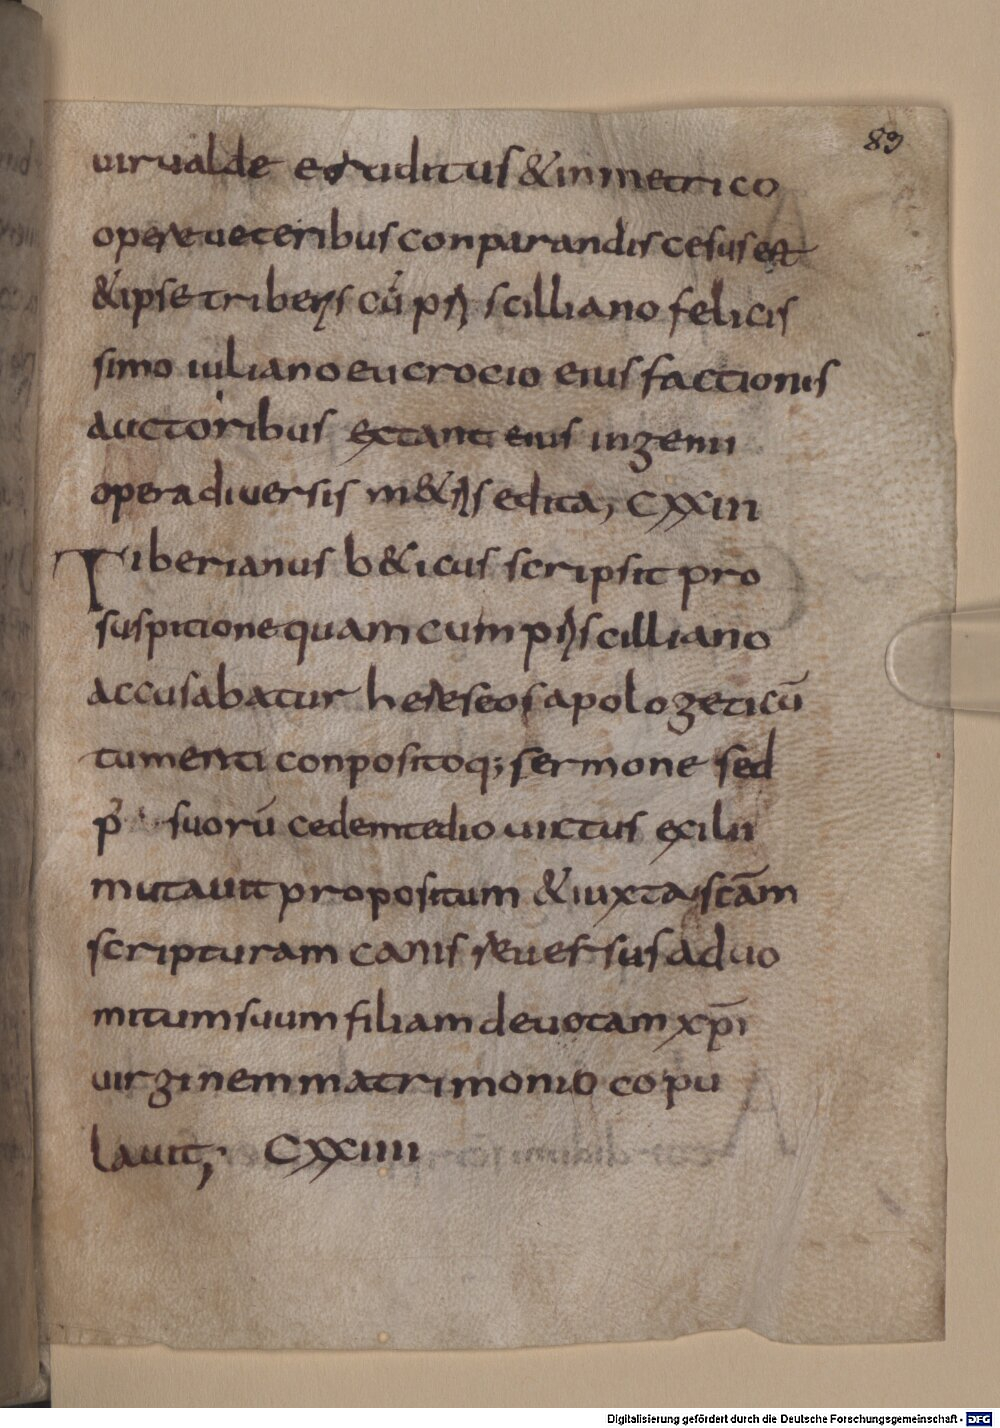 89
uir ualde eruditus & in metrico
opere ueteribus conparandis cesus est
& ipse triberis cū pris scilliano felicis
simo iuliano eucrocio eius factionis
auctoribus extant eius ingenii
opera diuersis m&ris edita, CXXIII
Tiberianus b&icus scripsit pro
suspicione quam cum priscilliano
accusabatur hereseos apologeticū
tumenti conpositoq; sermone sed
p suorū cedem tedio uictus exilii
mutauit propositum & iuxta scām
scripturam canis reuersus ad uo
mitum suum filiam deuotam xp̄i
uirginem matrimonio copu
lauit; CXXIIII
Digitalisierung gefördert durch die Deutsche Forschungsgemeinschaft - DFG